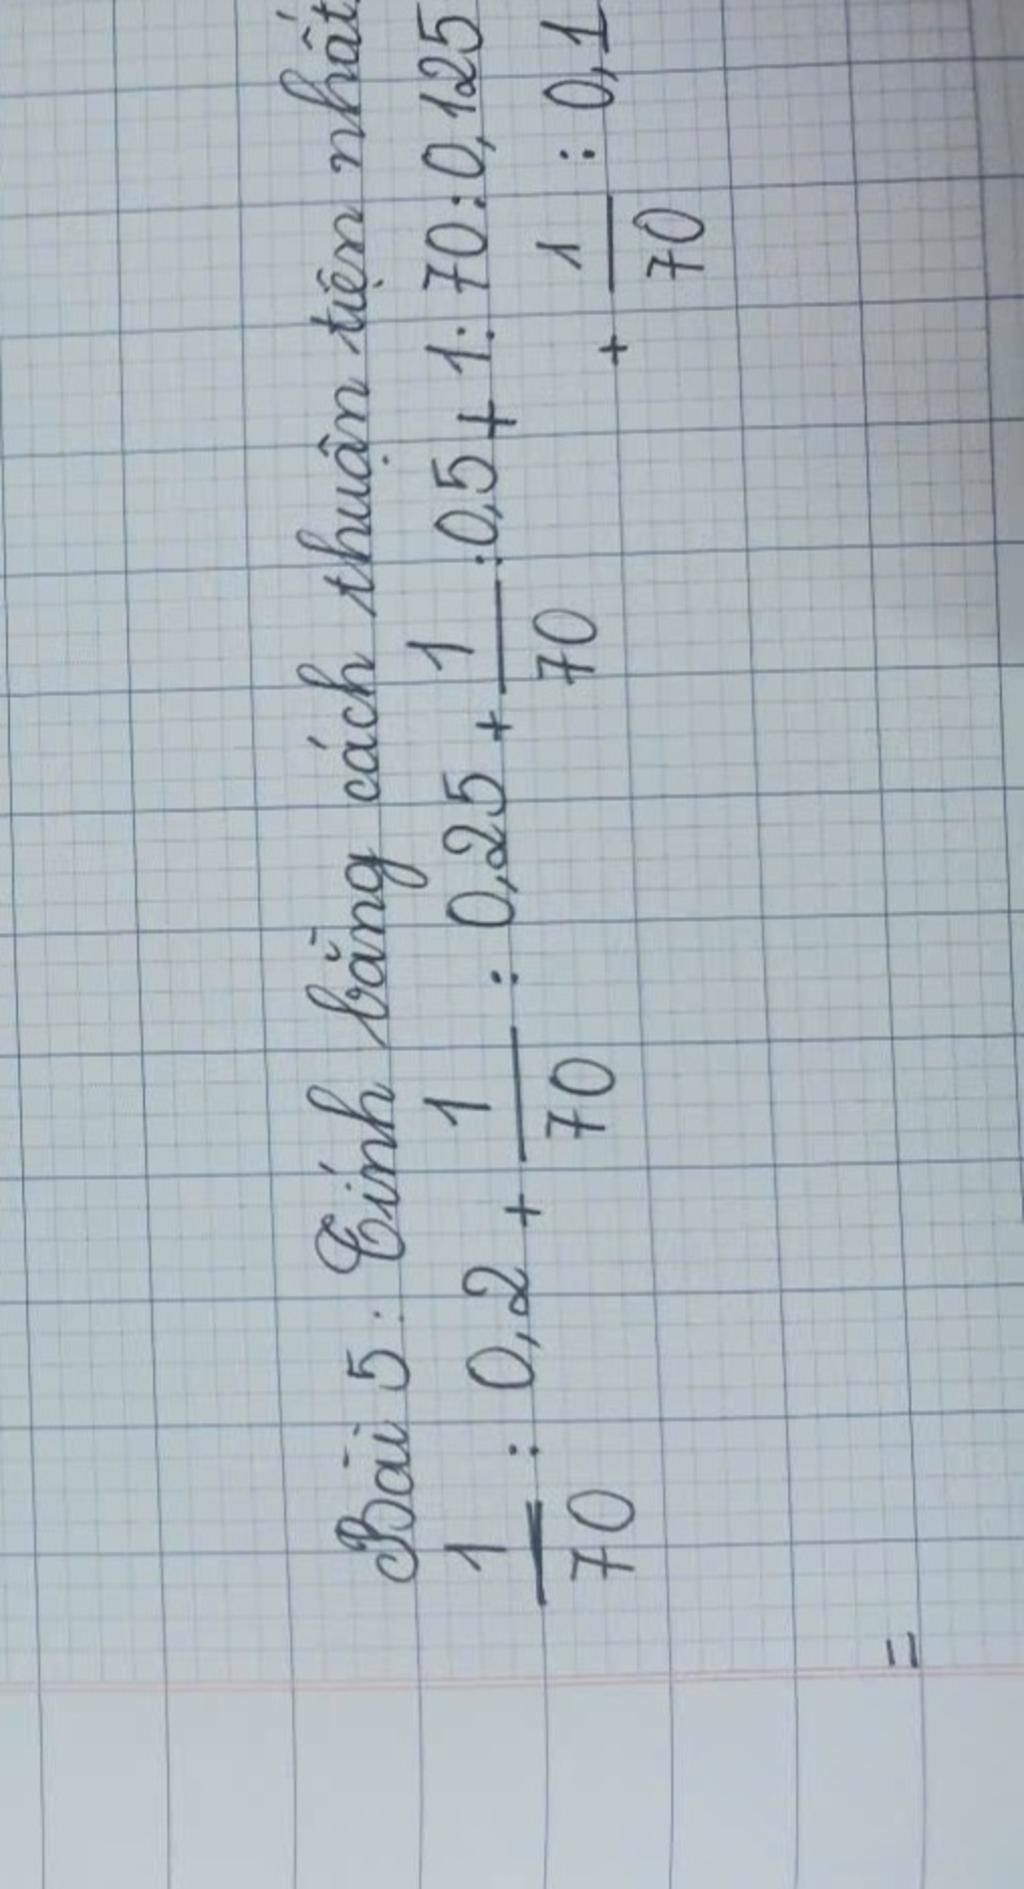 Bài 5: Tính bằng cách thuận tiện nhất.
1/70 : 0,2 + 1/70 : 0,25 + 1/70 : 0,5 + 1 : 70 : 0,125
+ 1/70 : 0,1
=